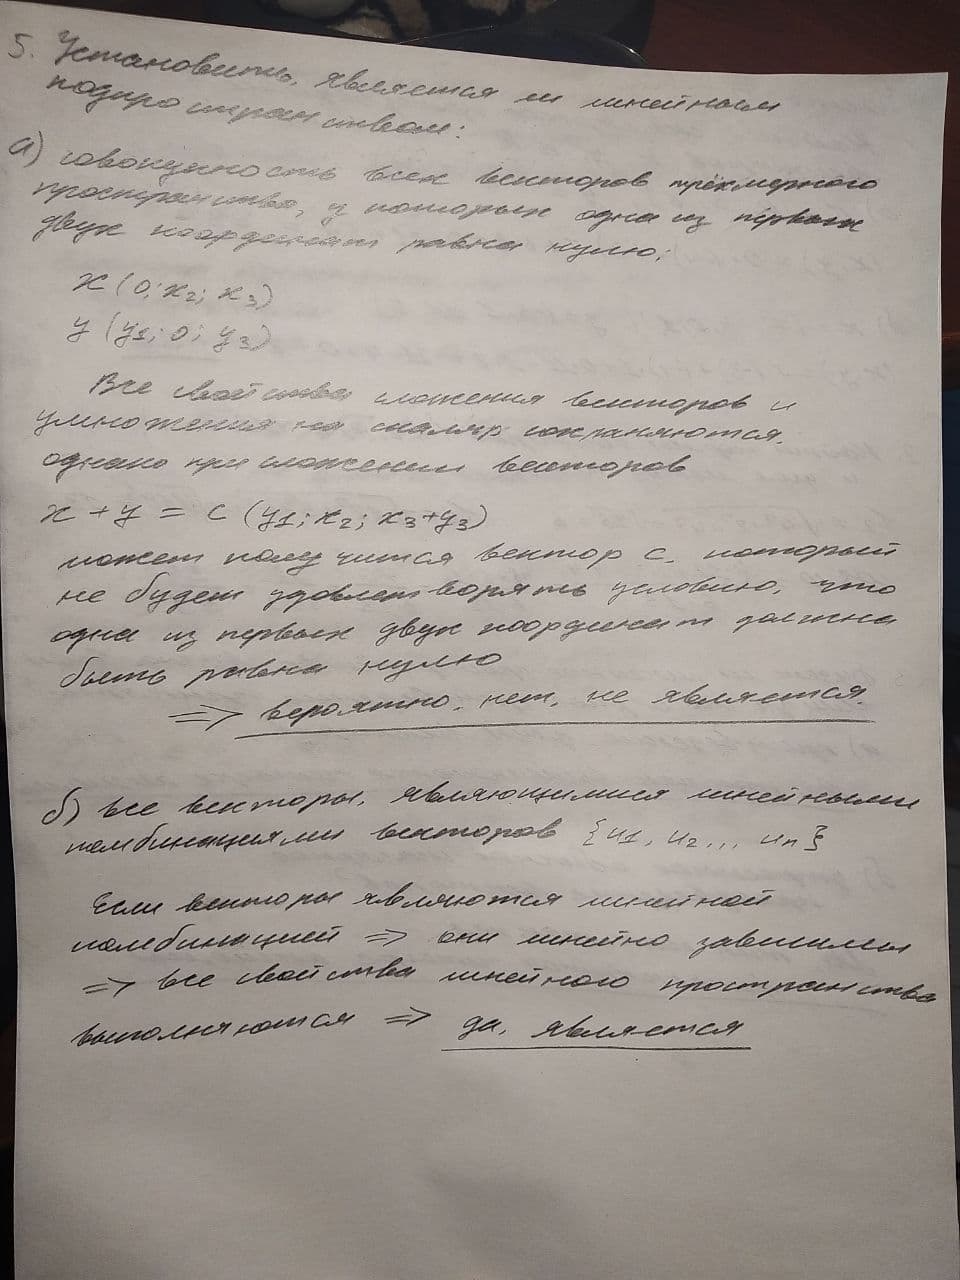 5. Установить, является ли линейным
подпространством:
а) совокупность всех векторов трёхмерного
пространства, у которых одна из первых
двух координат равна нулю:
x (0; x2; x3)
y (y1; 0; y3)
Все свойства сложения векторов и
умножения на скаляр сохраняются.
однако при сложении векторов
x + y = c (y1; x2; x3+y3)
может получится вектор c, который
не будет удовлетворять условию, что
одна из первых двух координат должна
быть равна нулю
=> вероятно, нет, не является.
б) все векторы, являющимися линейными
комбинациями векторов {u1, u2... un}
Если векторы являются линейной
комбинацией => они линейно зависимы
=> все свойства линейного пространства
выполняются => да, является